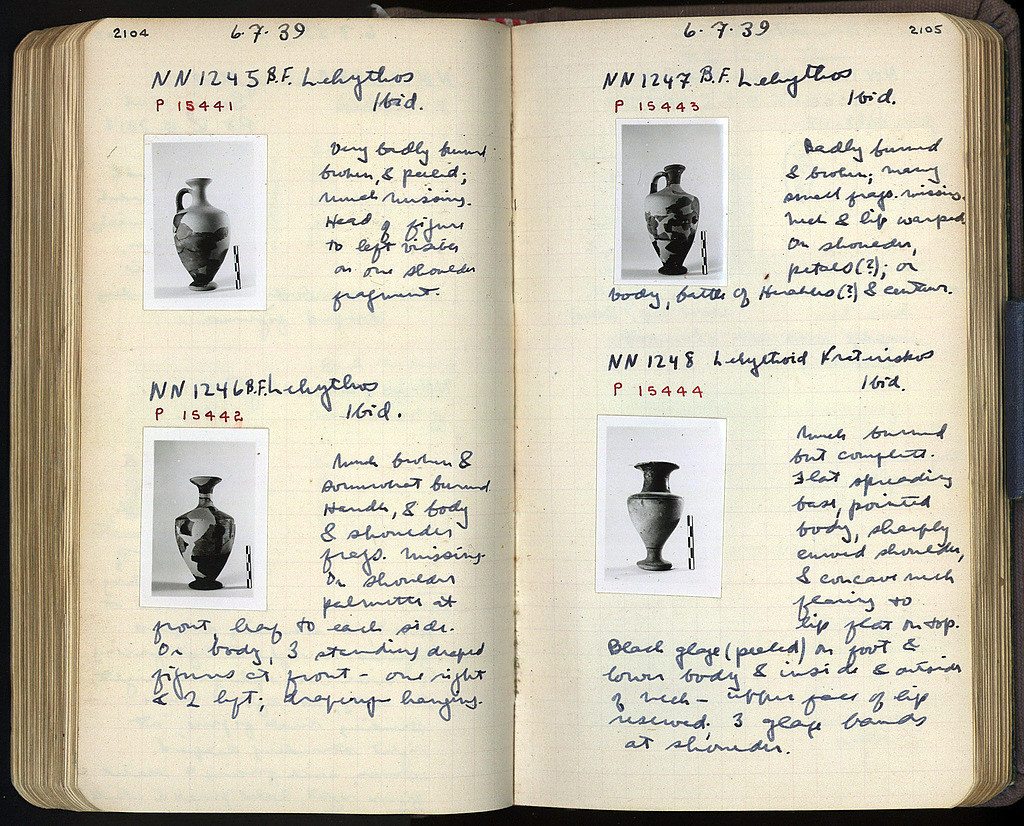 2104
6.7.39
NN 1245 B.F. Lekythos
P 15441
Ibid.
Very badly burned
broken, & peeled;
much missing.
Head of figure
to left visible
on one shoulder
fragment.
NN 1246 B.F. Lekythos
P 15442
Ibid.
Much broken &
somewhat burned.
Handle, & body
& shoulder
frags. missing.
On shoulder
palmette at
front, leaf to each side.
On body, 3 standing draped
figures at front – one right
& 2 left; drapery hanging.
2105
6.7.39
NN 1247 B.F. Lekythos
P 15443
Ibid.
Badly burned
& broken; many
small frags. missing.
Neck & lip warped.
On shoulder,
petals(?); on
body, battle of Herakles(?) & centaur.
NN 1248 Lekythoid
P 15444
Ibid.
Much burned
but complete.
Flat spreading
base, pointed
body, sharply
curved shoulder,
& concave neck
flaring to
lip flat on top.
Black glaze (peeled) on foot &
lower body & inside & outside
of neck – upper face of lip
reserved. 3 glaze bands
at shoulder.